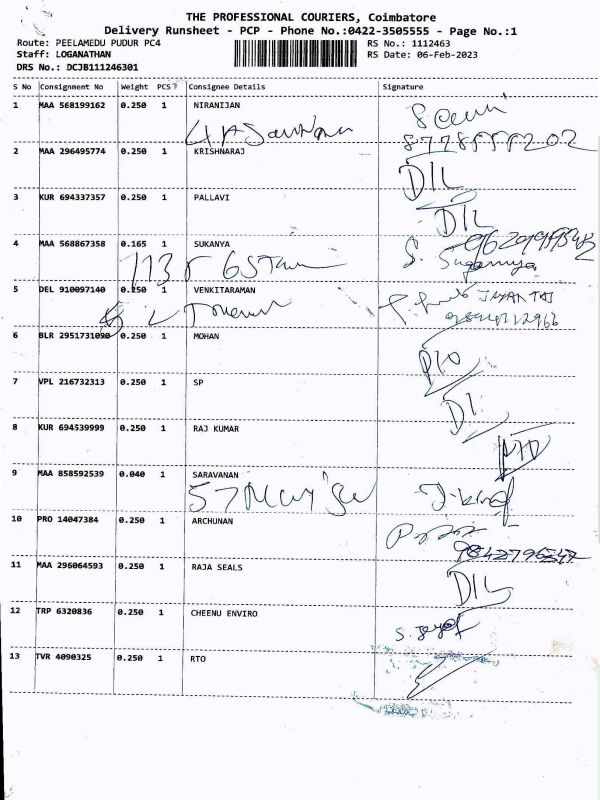 THE PROFESSIONAL COURIERS, Coimbatore
Delivery Runsheet - PCP - Phone No.:0422-3505555 - Page No.:1
Route: PEELAMEDU PUDUR PC4 RS No.: 1112463
Staff: LOGANATHAN RS Date: 06-Feb-2023
DRS No.: DCJB111246301
S No Consignment No Weight PCS Consignee Details Signature
1 MAA 568199162 0.250 1 NIRANIJAN
2 MAA 296495774 0.250 1 KRISHNARAJ
D/L
3 KUR 694337357 0.250 1 PALLAVI
D/L
4 MAA 568867358 0.165 1 SUKANYA
S.
5 DEL 910097140 0.250 1 VENKITARAMAN
6 BLR 2951731090 0.250 1 MOHAN
7 VPL 216732313 0.250 1 SP
8 KUR 694539999 0.250 1 RAJ KUMAR
9 MAA 858592539 0.040 1 SARAVANAN
57
10 PRO 14047384 0.250 1 ARCHUNAN
11 MAA 296064593 0.250 1 RAJA SEALS
D/L
12 TRP 6320836 0.250 1 CHEENU ENVIRO
13 TVR 4090325 0.250 1 RTO